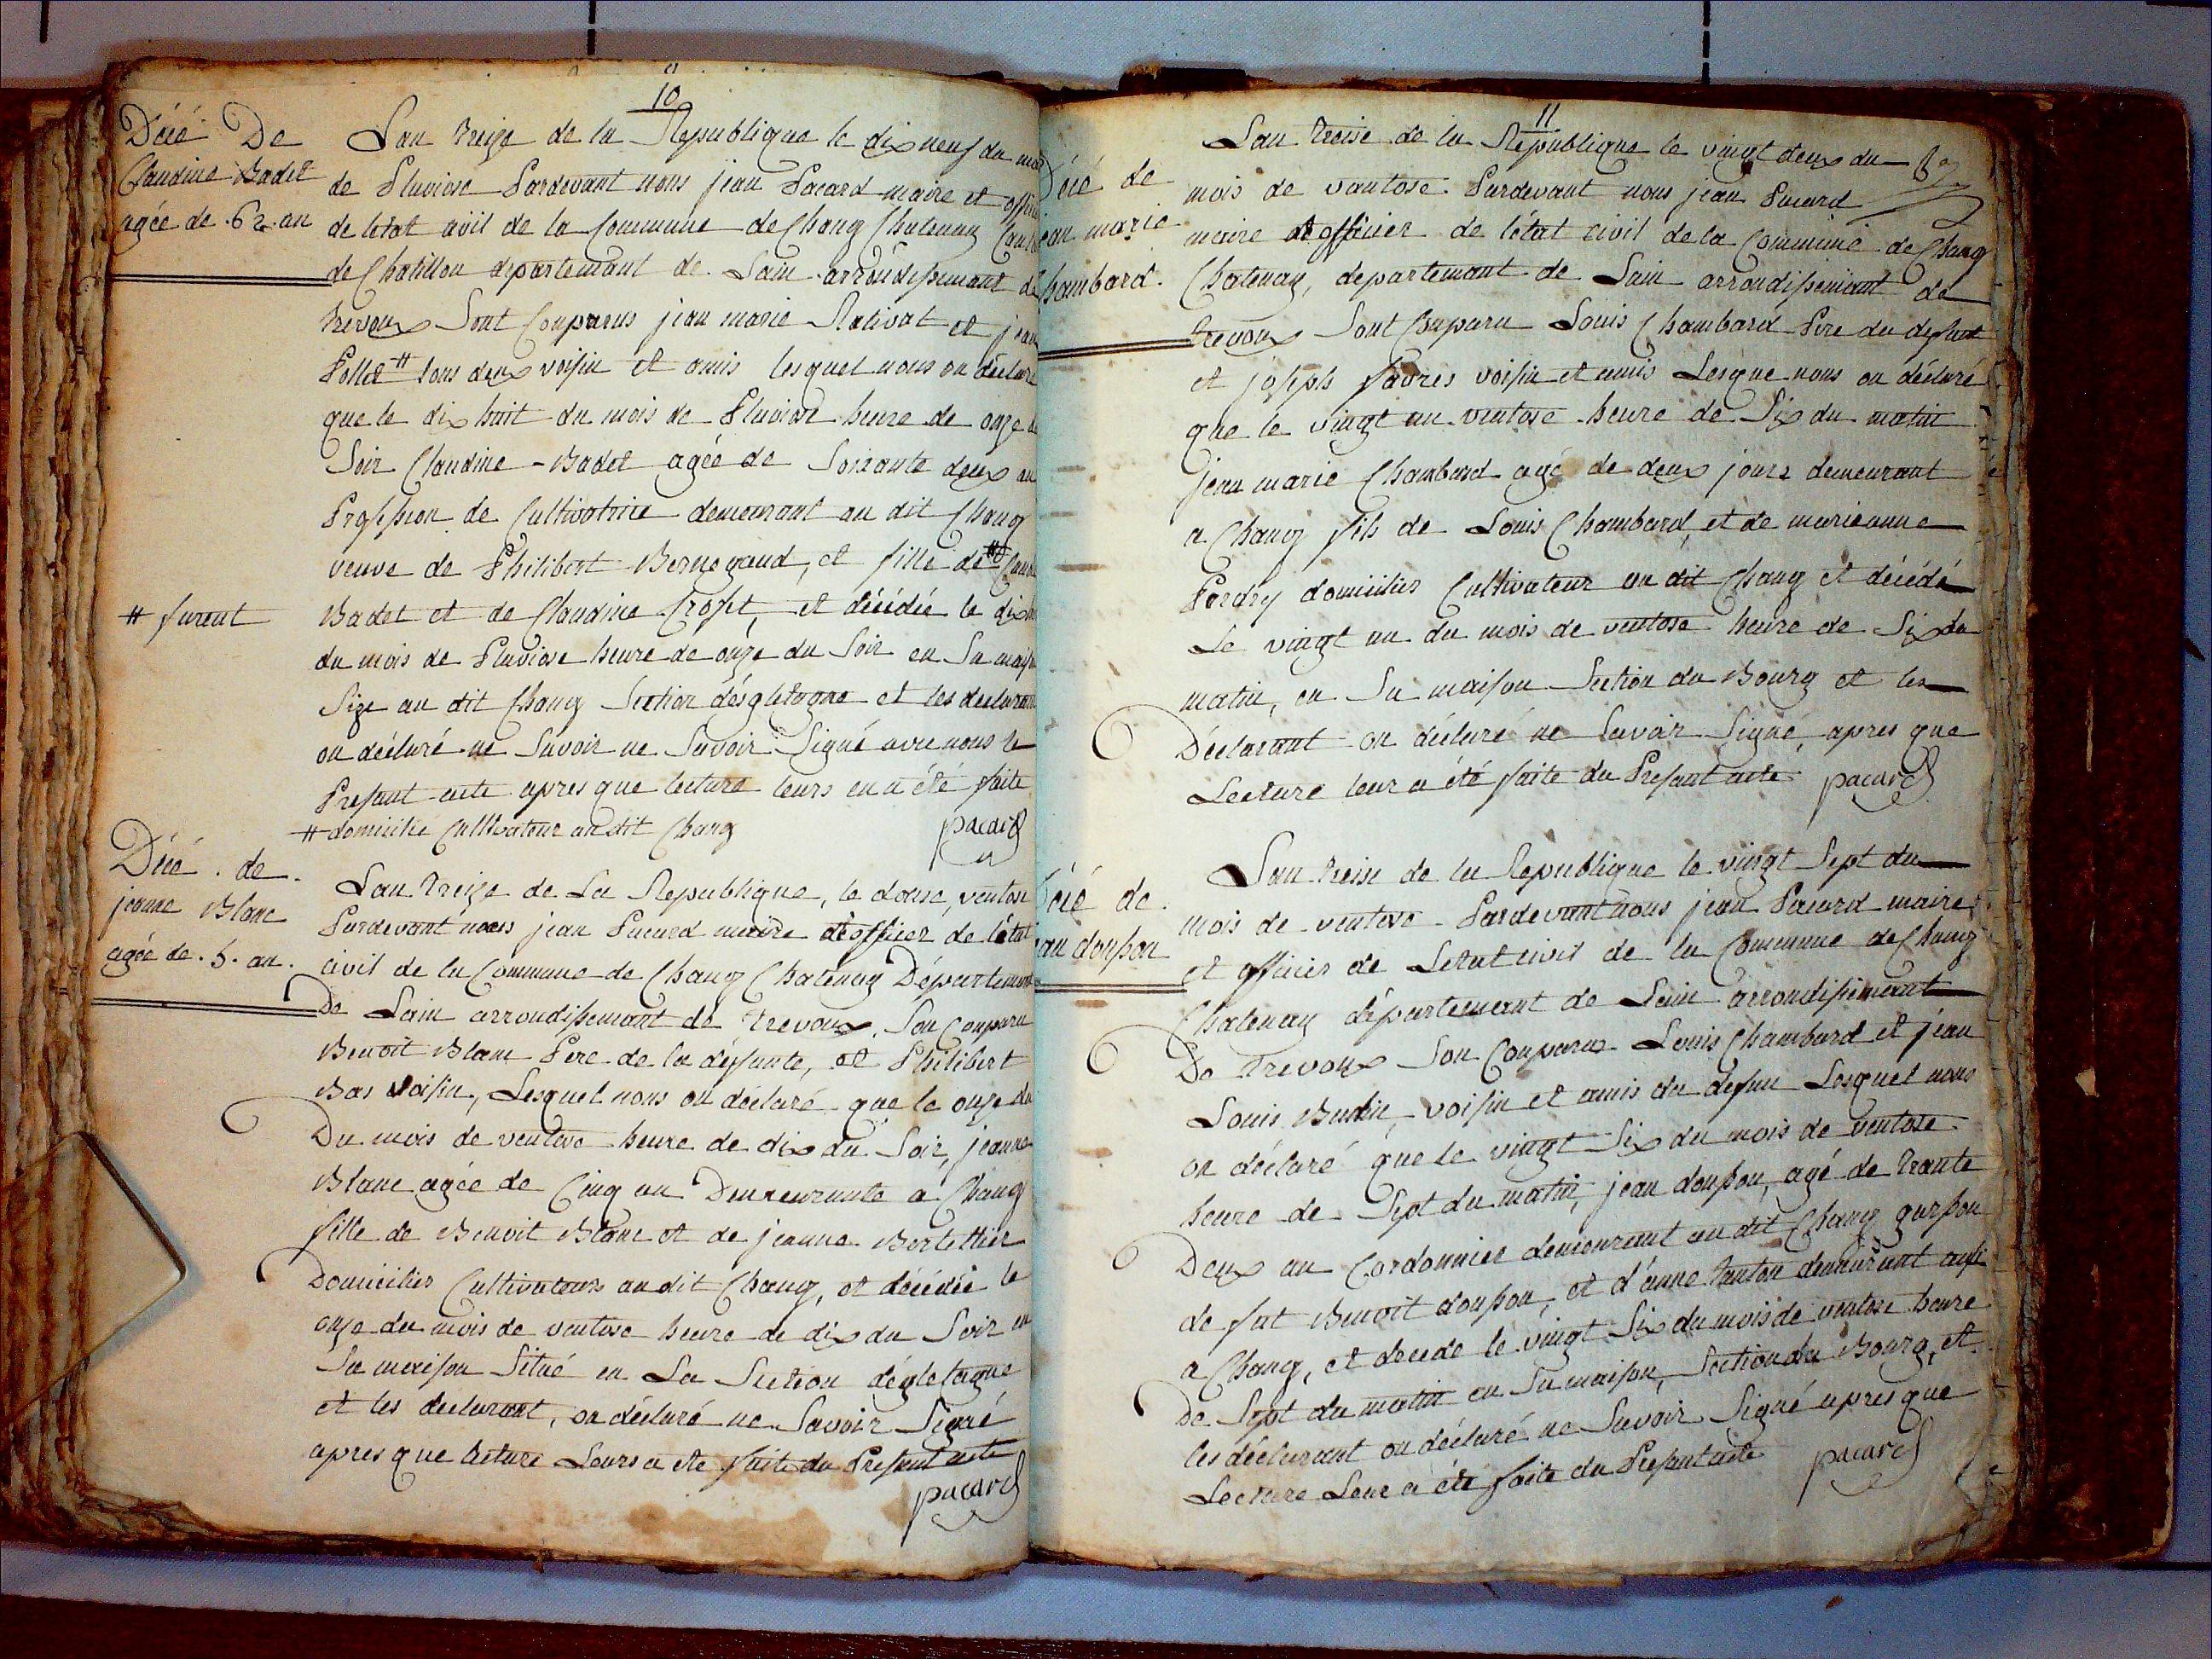 10
Décé De
Claudine Badet
agée de .62. an
Lan treize de la Republique le dix neuf du mois
de Pluviose Pardevant nous jean Pacard maire et officier
de létat civil de la Commune de Chang Chatenay Canton
de Chatillon departemant de Lain arrondissemant de
trevoux Sont Comparus jean marie Rativat et jean
Pollet # tous deux voisin et amis lesquel nous on déclaré
que le dix huit du mois de Pluviose heure de onze du
Soir Claudine Badet agée de Soixante deux an
Profession de Cultivatrice demeurant au dit Chang
veuve de Philibert Bernegaud, et fille de # Claude
# furent
Badet et de Claudine Crozet, et décédée le dix huit
du mois de Pluviose heure de onze du Soir en Sa maison
Size au dit Chang Section désgletagne et les declarant
on déclaré ne Savoir ne Savoir Signé avec nous le
Presant acte apres que lecture leurs en a été faite
# domicilié Cultivateur au dit Chang
pacard
Décé . de
jeanne Blanc
agée de . 5 . an .
Lan treize de La Republique, le douse, ventose
Pardevant nous jean Pacard maire et officier de létat
civil de la Commune de Chang Chatenay Département
De Lain arrondissemant de Trevoux, Son Comparu
Benoit Blanc Pere de la défunte, et Philibert
Bas voisin, Lesquel nous on déclaré que le onze du
Du mois de ventose heure de dix du Soir, jeanne
Blanc agée de Cinq an Demeurante a Chang
fille de Benoit Blanc et de jeanne Bertettier
Domicilies Cultivateurs au dit Chang, et décédée le
onze du mois de ventose heure de dix du Soir en
Sa maison Situé en La Section dégletagne
et les declarant, on déclaré ne Savoir Signé
apres que lecture Leurs a ete faite du Presant acte
pacard
11
Décé de
jean marie
Chambard.
Lan treise de la Republique le vingt deux du
mois de vantose. Pardevant nous jean Pacard
maire et officier de létat civil de la Commune de Chang
Chatenay, departemant de Lain arrondissemant de
trevoux Sont Comparu Louis Chambard Pere du defunt
et joseph favres voisin et amis Lesque nous on déclaré
que le vingt un ventose heure de Six du matin
jean marie Chambard agé de deux jours demeurant
a Chang fils de Louis Chambard, et de marieanne
Perdry domicilies Cultivateur au dit Chang et décédé
Le vingt un du mois de ventose heure de Six du
matin, en Sa maison Section du Bourg et les
Déclarant on déclaré ne Savoir Signé, apres que
Lecture leur a été faite du Presant acte pacard
Décé de
jean donsson
Lan treise de la Republique le vingt Sept du
mois de ventose Pardevant nous jean Pacard maire
et officier de Letat civil de la Commune de Chang
Chatenay département de Lain arrondissemant
De Trevoux Son Comparus Louis Chambard et jean
Louis Budin, voisin et amis du defun Lesquel nous
on déclaré que le vingt Six du mois de ventose
heure de Sept du matin, jean donsson, agé de trante
Deux an Cordonnier demeurant au dit Chang garsson
de fut Benoit donsson, et d'anne tanton demeurant aussi
a Chang, et décede le vingt Six du mois de ventose heure
De Sept du matin en Sa maison, Section du Bourg, et
les déclarant on déclaré ne Savoir Signé apres que
Lecture Leur a été faite du Presant acte pacard